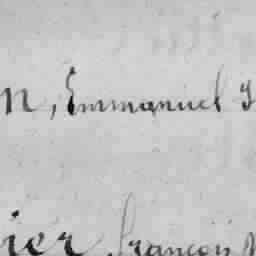 n, Emmanuel J
ier, françois